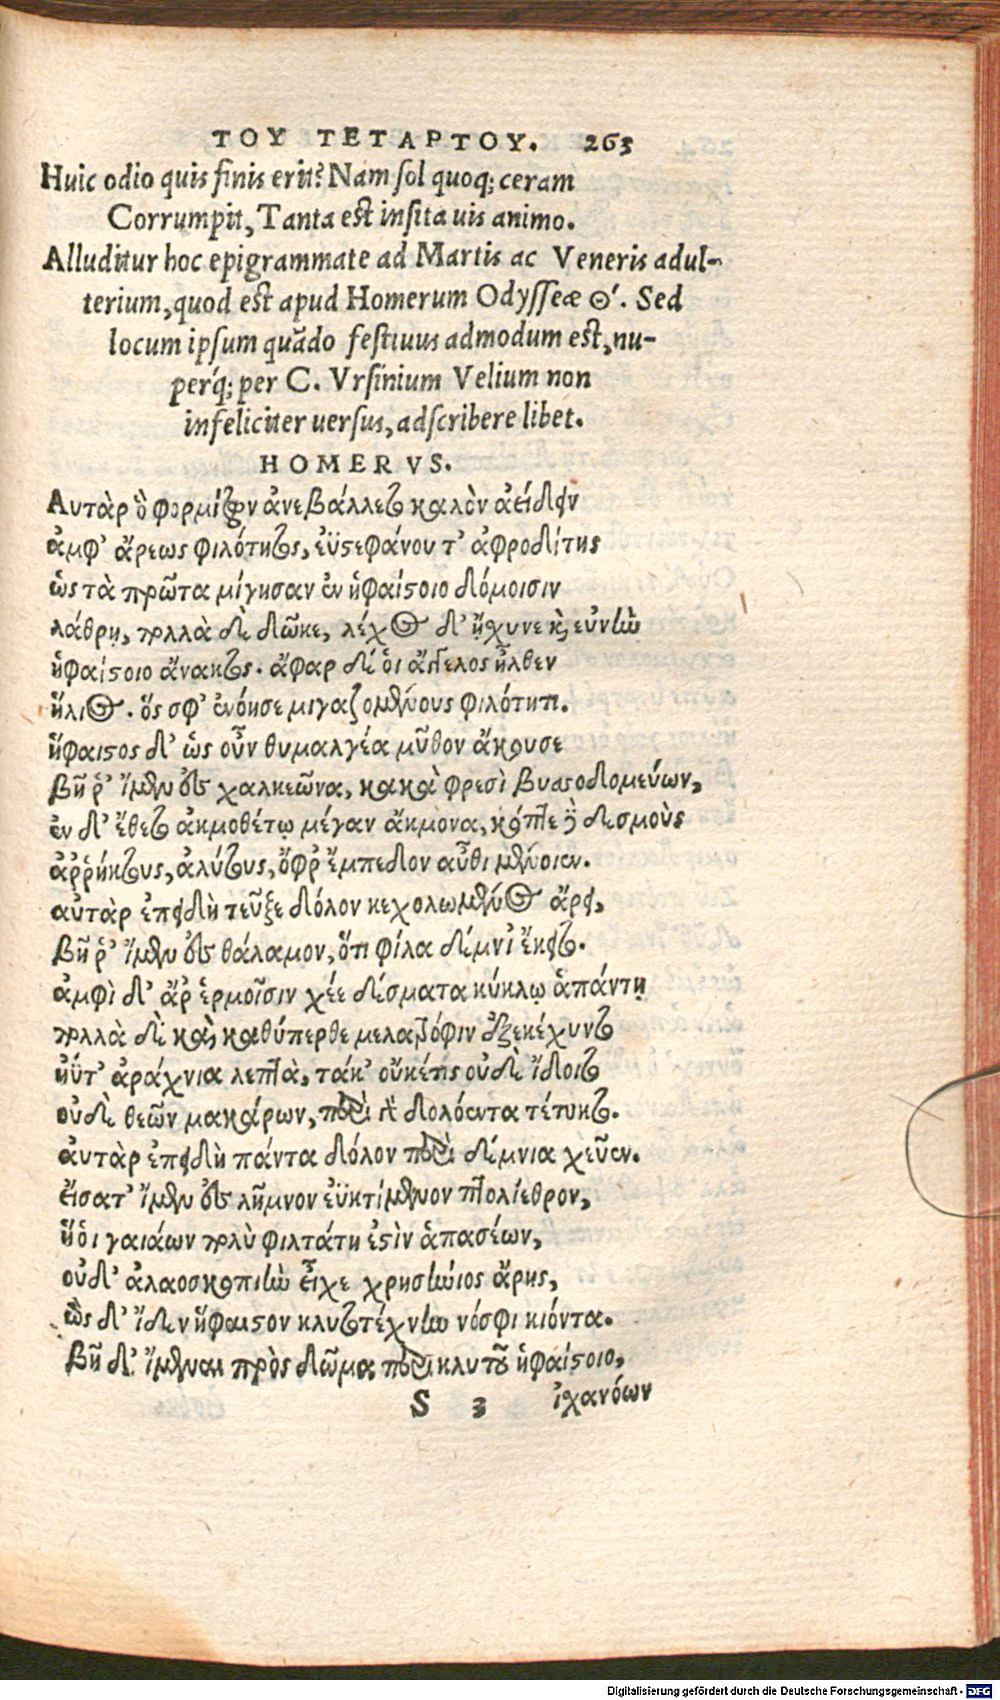 ΤΟΥ ΤΕΤΑΡΤΟΥ. 263
Huic odio quis finis erit? Nam sol quoq; ceram
Corrumpit, Tanta est insita uis animo.
Alluditur hoc epigrammate ad Martis ac Veneris adul-
terium, quod est apud Homerum Odysseæ Θ'. Sed
locum ipsum quādo festiuus admodum est, nu-
perq́; per C. Vrsinium Velium non
infeliciter uersus, adscribere libet.
HOMERVS.
Αυτὰρ ὃ φορμίζων ἀνεβάλλετο καλὸν ἀείδειν
ἀμφ' ἄρεως φιλότητος, ἐϋστεφάνου τ' ἀφροδίτης
ὡς τὰ πρῶτα μίγησαν ἐν ἡφαίστοιο δόμοισιν
λάθρῃ, πολλὰ δὲ δῶκε, λέχος δ' ᾔχυνε καὶ εὐνὴν
ἡφαίστοιο ἄνακτος. ἄφαρ δέ οἱ ἄγγελος ἦλθεν
ἥλιος. ὅς σφ' ἐνόησε μιγαζομένους φιλότητι.
ἥφαιστος δ' ὡς οὖν θυμαλγέα μῦθον ἄκουσε
βῆ ῥ' ἴμεν εἰς χαλκεῶνα, κακὰ φρεσὶ βυσσοδομεύων,
ἐν δ' ἔθετο ἀκμοθέτῳ μέγαν ἄκμονα, κόπτε δὲ δεσμοὺς
ἀῤῥήκτους, ἀλύτους, ὄφρ' ἔμπεδον αὖθι μένοιεν.
αὐτὰρ ἐπειδὴ τεῦξε δόλον κεχολωμένος ἄρει,
βῆ ῥ' ἴμεν εἰς θάλαμον, ὅτι φίλα δέμνι' ἔκειτο.
ἀμφὶ δ' ἄρ' ἑρμοῖσιν χέε δέσματα κύκλῳ ἁπάντῃ
πολλὰ δὲ καὶ καθύπερθε μελαθρόφιν ἐξεκέχυντο
ἠΰτ' ἀράχνια λεπτὰ, τάκ' οὔκέτις οὐδὲ ἴδοιτο
οὐδὲ θεῶν μακάρων, περὶ γὰρ δολόεντα τέτυκτο.
ἀυτὰρ ἐπειδὴ πάντα δόλον περὶ δέμνια χεῦεν.
εἴσατ' ἴμεν εἰς λῆμνον ἐϋκτίμενον πτολίεθρον,
ἥ οἱ γαιάων πολὺ φιλτάτη ἐστὶν ἁπασέων,
οὐδ' ἀλαοσκοπιὴν εἶχε χρυσήνιος ἄρης,
ὡς δ' ἴδεν ἥφαιστον κλυτοτέχνην νόσφι κιόντα.
βῆ δ' ἴμεναι πρὸς δῶμα περικλυτοῦ ἡφαίστοιο,
S 3 ἰχανόων
Digitalisierung gefördert durch die Deutsche Forschungsgemeinschaft - DFG